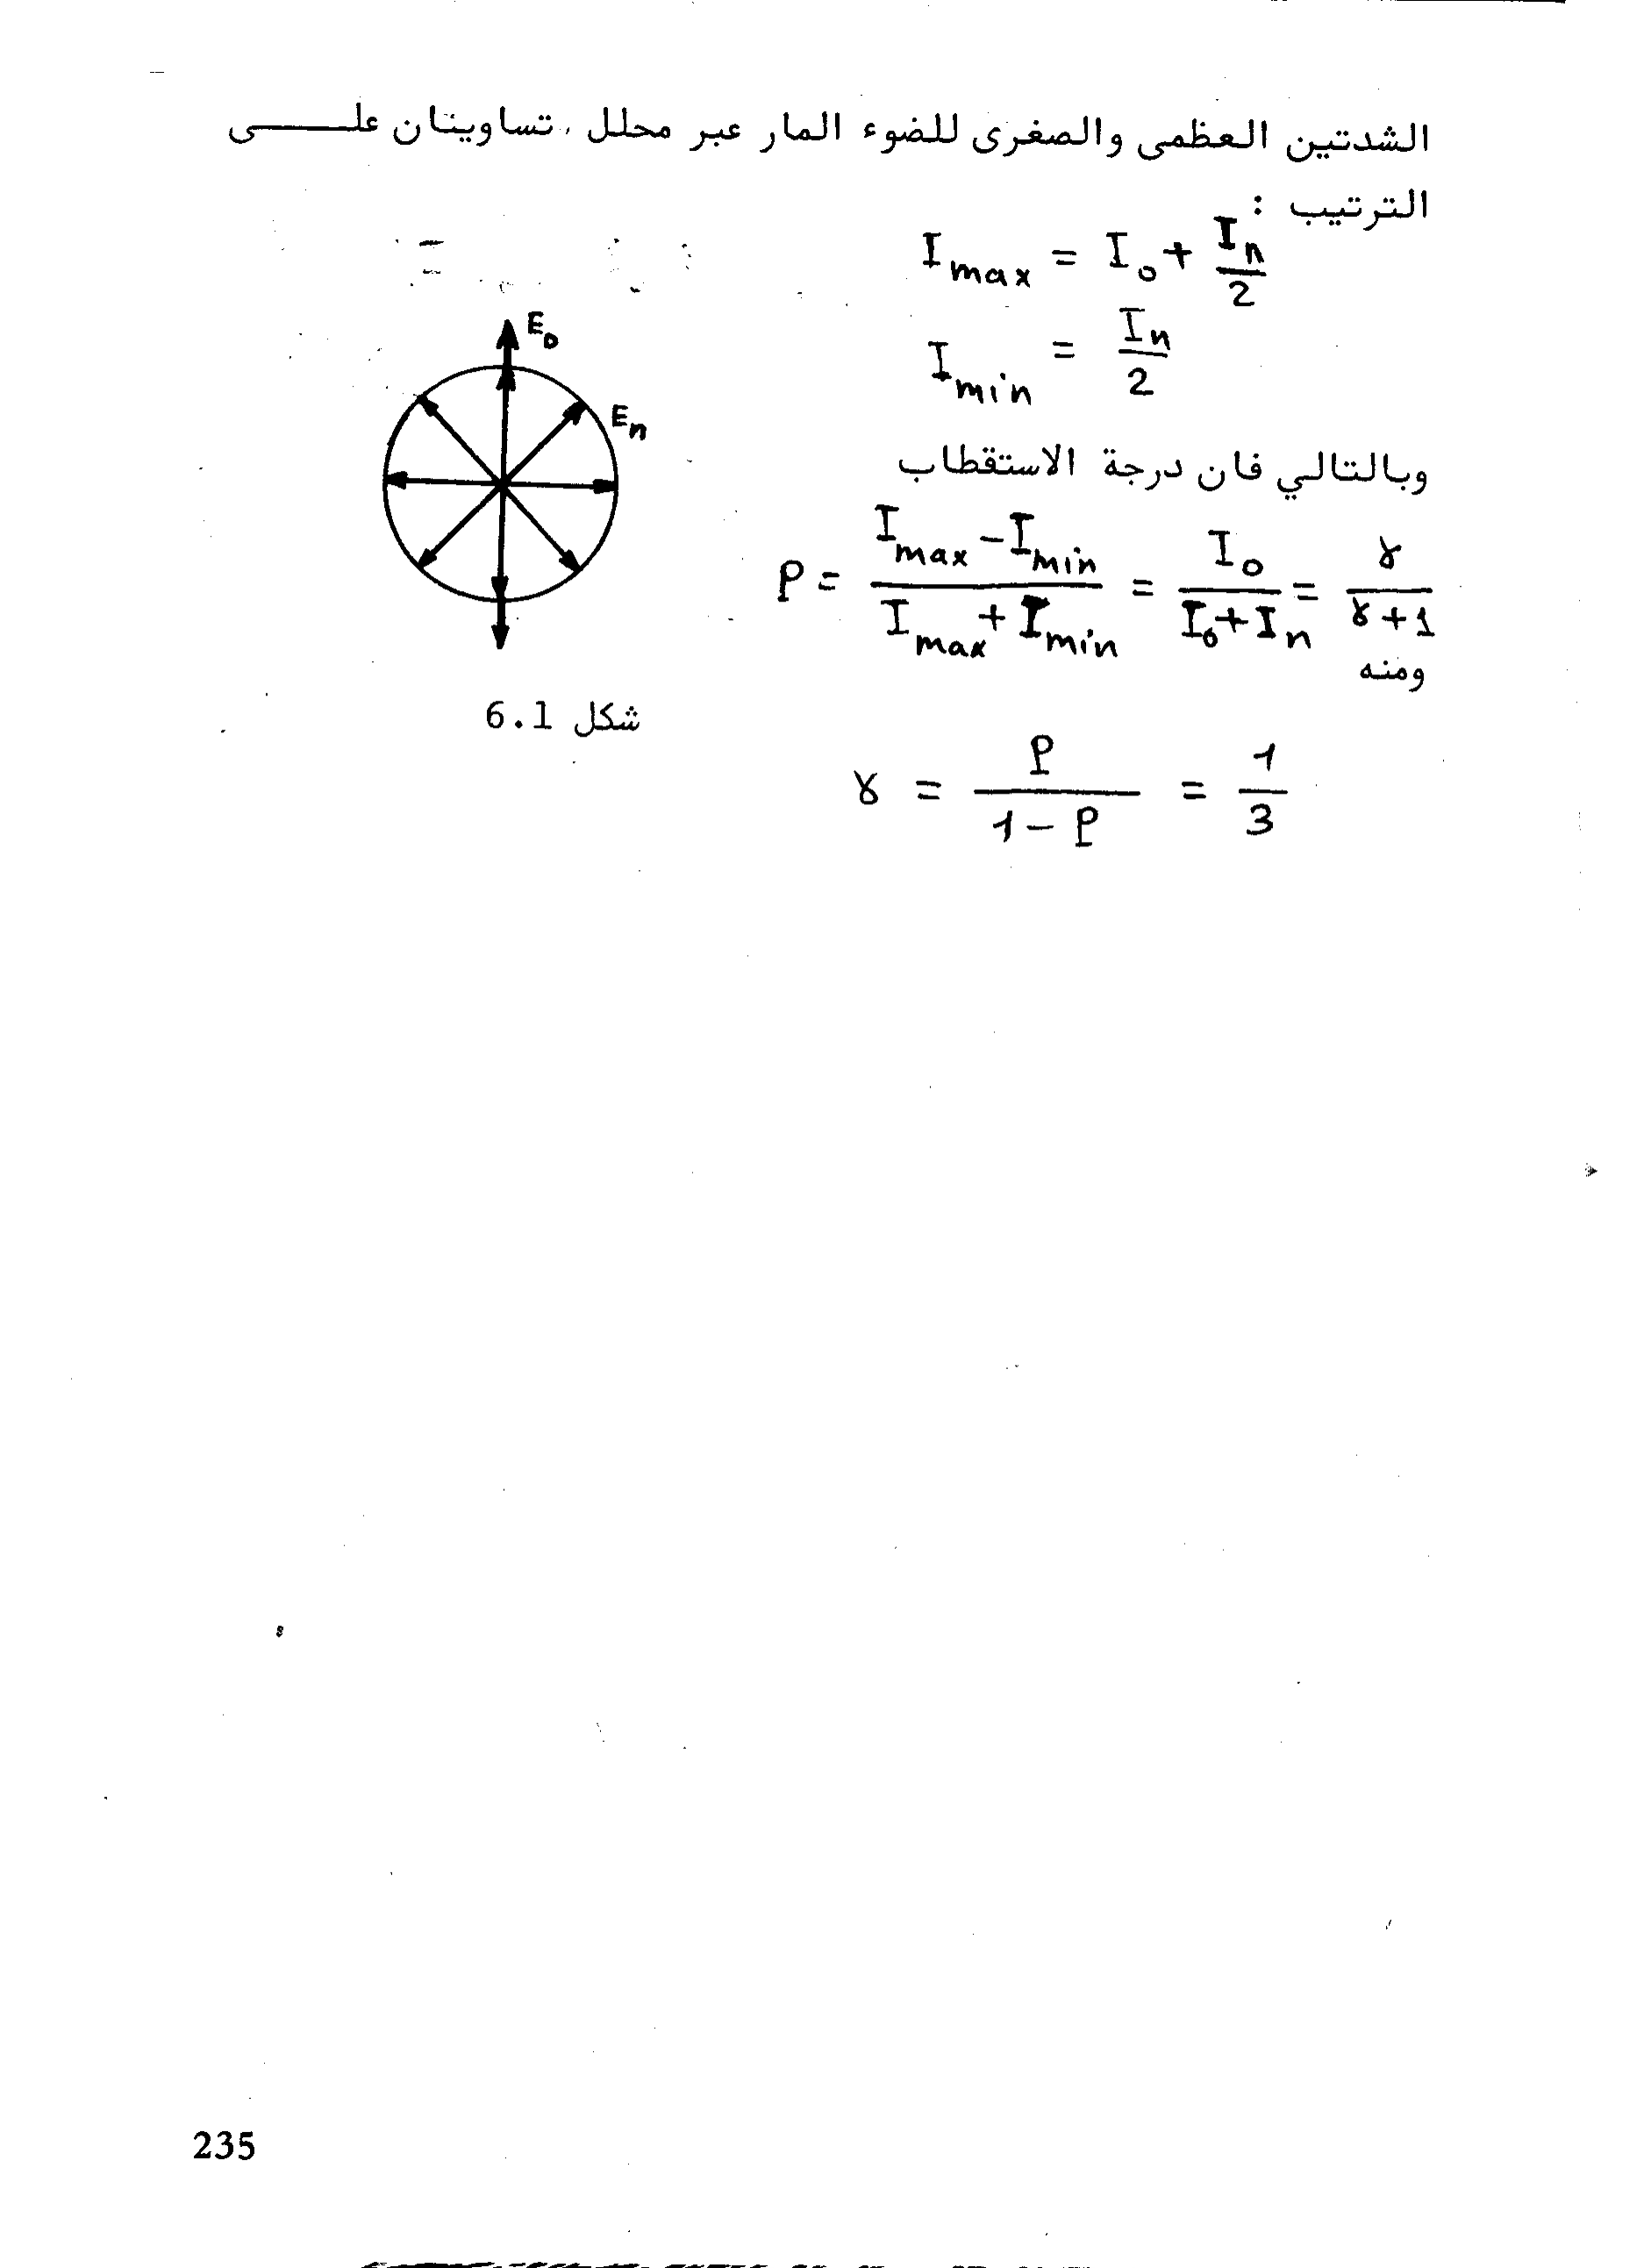 الشدتين العظمى والصغرى للضوء المار عبر محلل ، تساويتان علـــى
الترتيب :
I_max = I_0 + I_n/2
I_min = I_n/2
E_0
E_n
وبالتالي فان درجة الاستقطاب
P = (I_max − I_min)/(I_max + I_min) = I_0/(I_0 + I_n) = γ/(γ+1)
ومنه
شكل 6.1
γ = P/(1−P) = 1/3
235